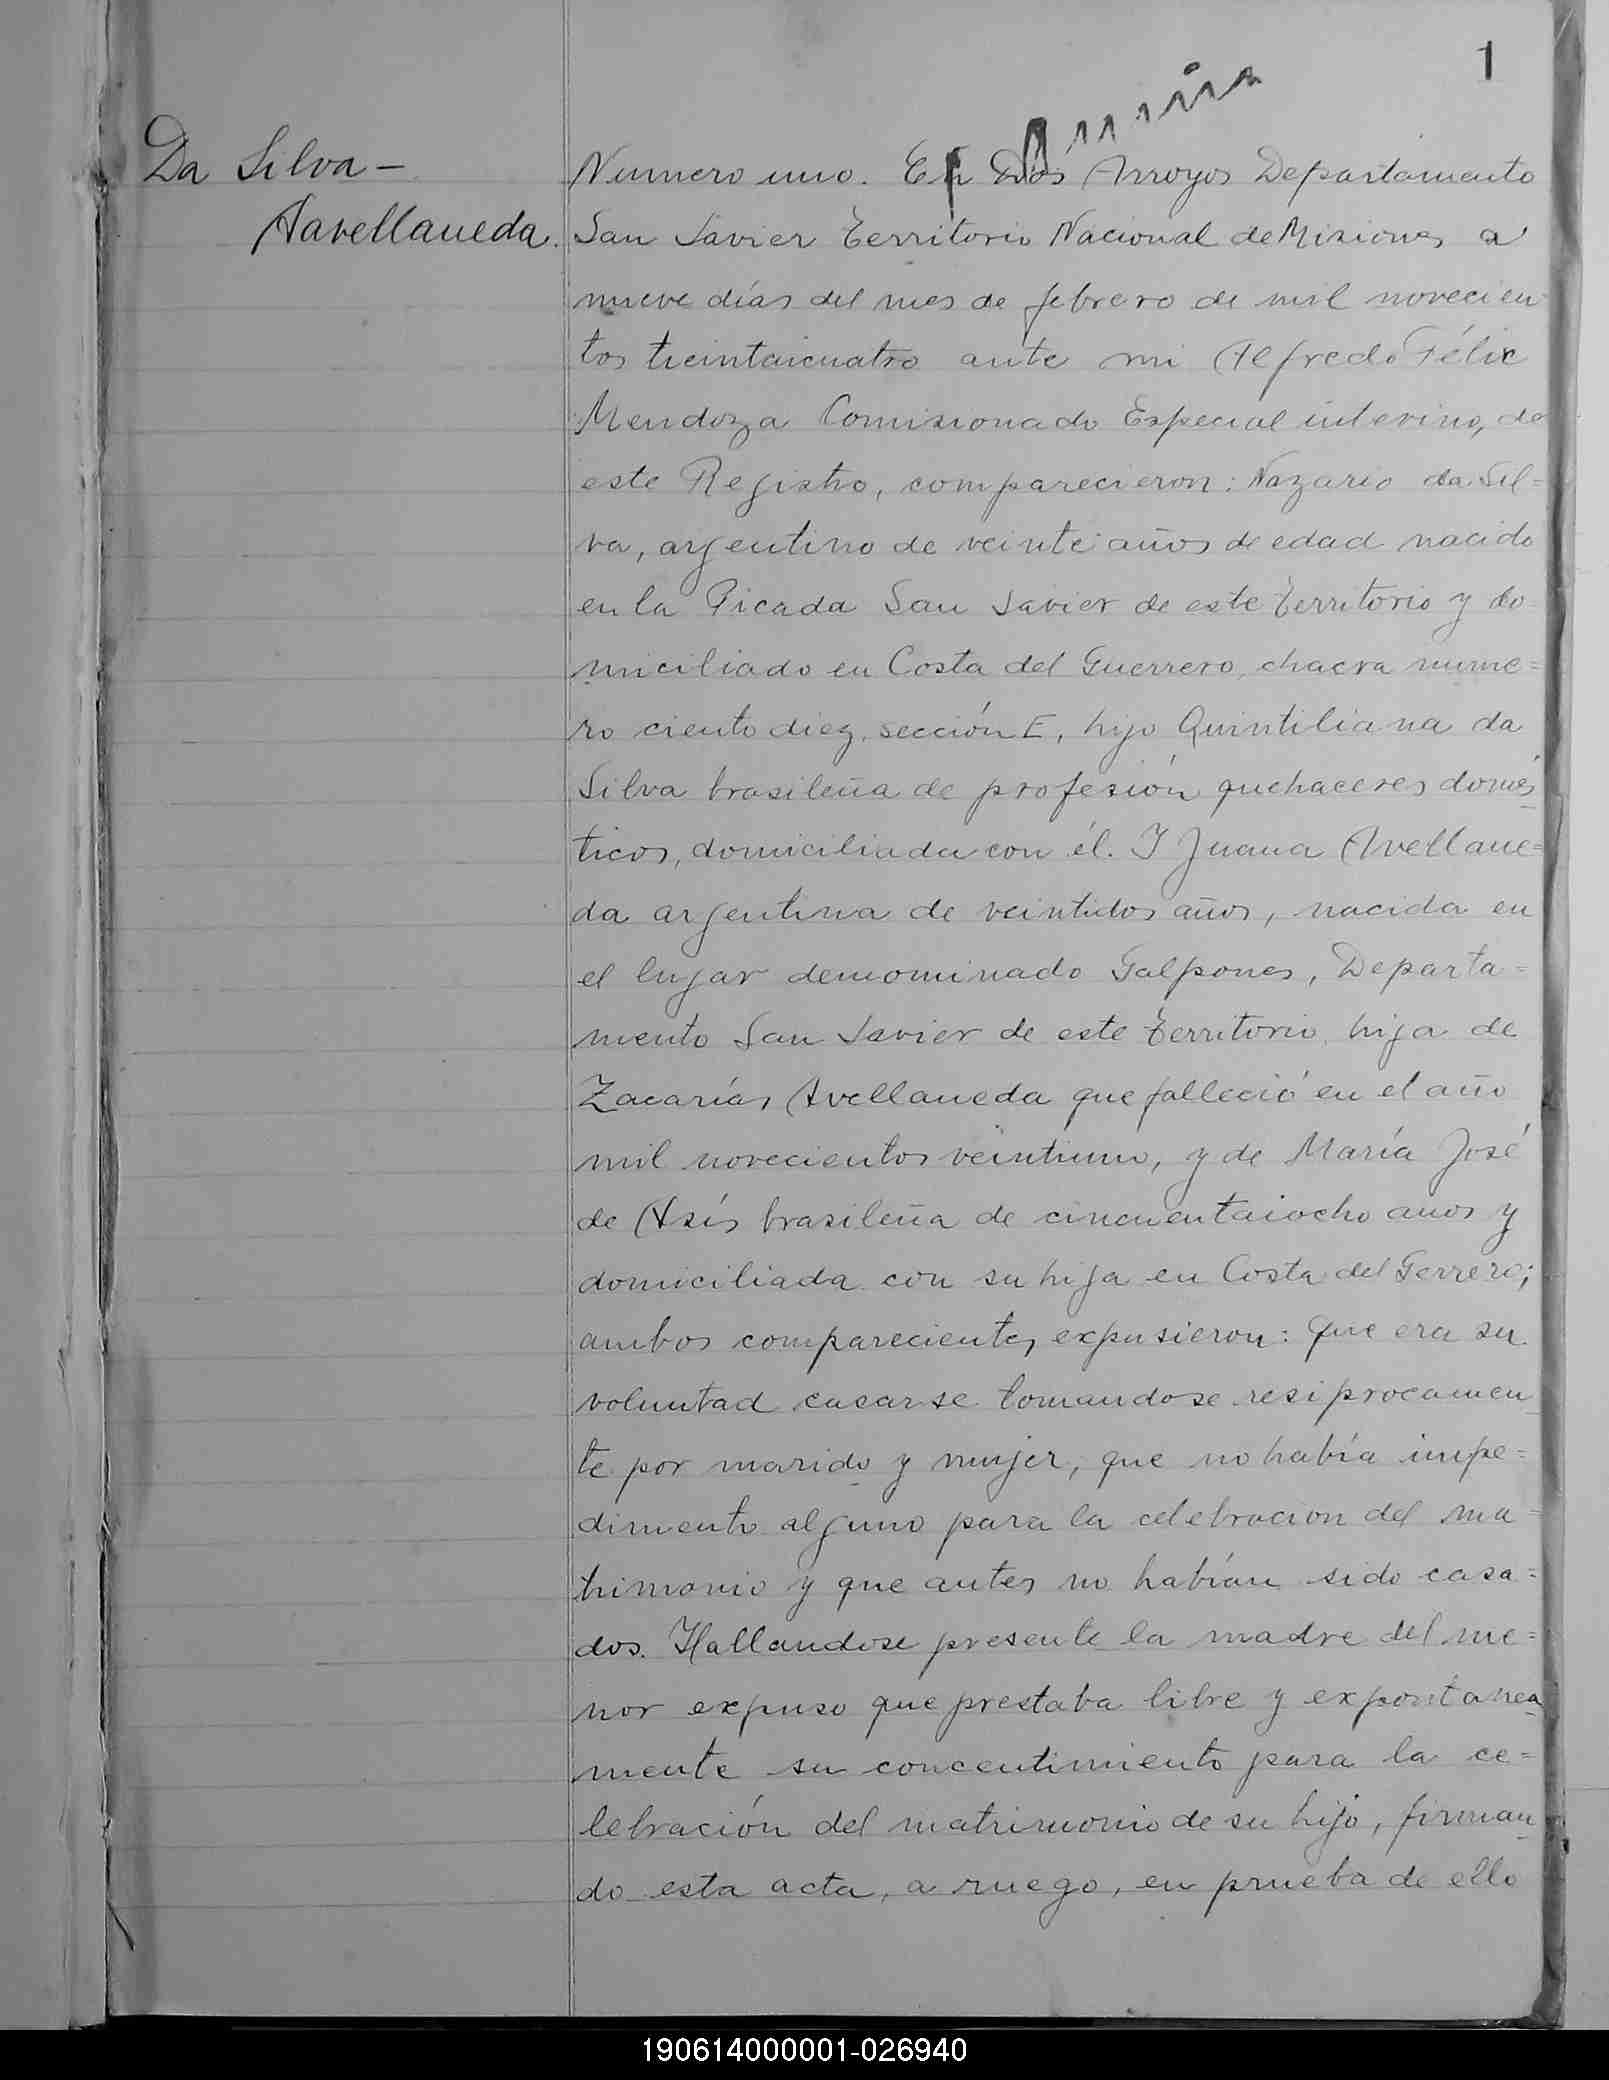 1
Da Silva —
Aavellaneda.
Numero uno. En Dos Arroyos Departamento
San Javier Territorio Nacional de Misiones a
nueve días del mes de febrero de mil novecien
tos treintaicuatro ante mi Alfredo Félix
Mendoza Comisionado Especial interino, de
este Registro, comparecieron: Nazario da Sil=
va, argentino de veinte años de edad nacido
en la Picada San Javier de este territorio y do
miciliado en Costa del Guerrero, chacra nume=
ro ciento diez, sección E, hijo Quintiliana da
Silva brasileña de profesión quehaceres domés
ticos, domiciliada con él. Y Juana Avellane=
da argentina de veintidos años, nacida en
el lugar denominado Galpones, Departa=
mento San Javier de este territorio, hija de
Zacarías Avellaneda que falleció en el año
mil novecientos veintiuno, y de María José
de Asís brasileña de cincuentaiocho anos y
domiciliada con su hija en Costa del Gerrero;
ambos comparecientes expusieron: Que era su
voluntad casarse tomandose resiprocamen
te por marido y mujer, que no había impe=
dimento alguno para la celebracion del ma=
trimonio y que antes no habían sido casa=
dos. Hallandose presente la madre del me=
nor expuso que prestaba libre y expontánea
mente su concentimiento para la ce=
lebración del matrimonio de su hijo, firman
do esta acta, a ruego, en prueba de ello
190614000001-026940